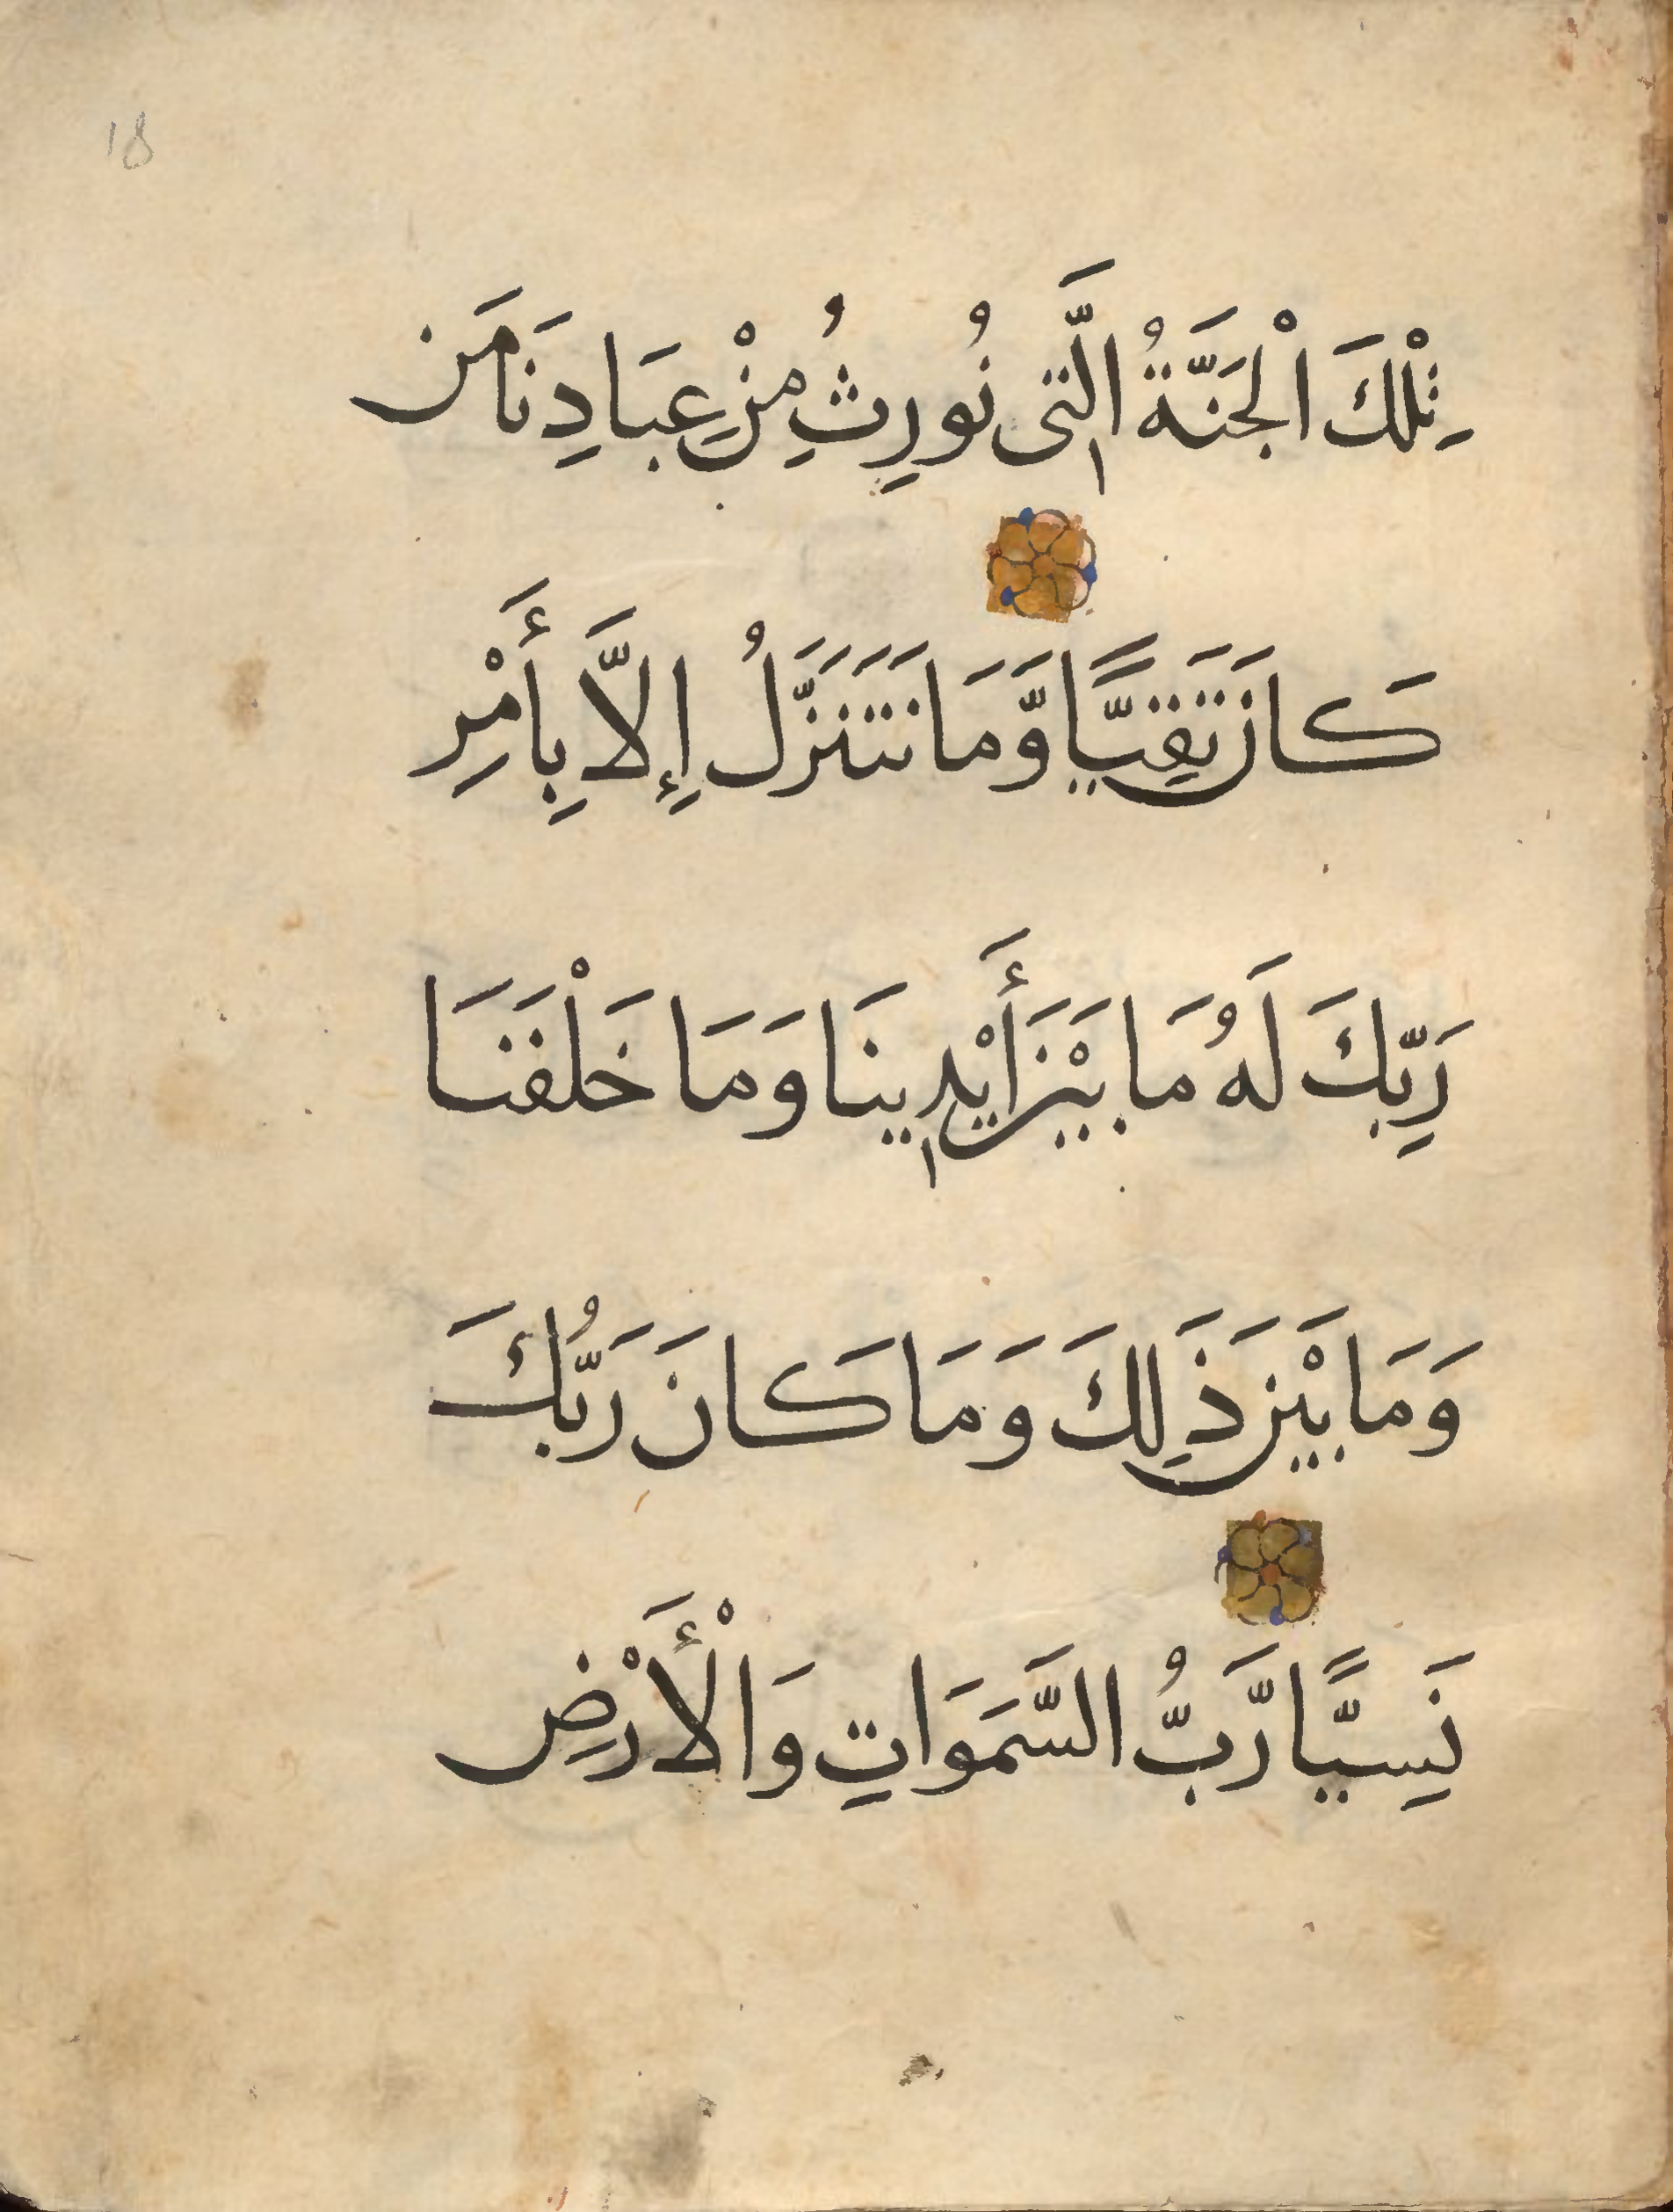 18
تِلْكَ الْجَنَّةُ الَّتِى نُورِثُ مِنْ عِبَادِنَا مَن
كَانَ تَقِيًّا وَّمَا نَتَنَزَّلُ إِلَّا بِأَمْرِ
رَبِّكَ لَهُ مَا بَيْنَ أَيْدِينَا وَمَا خَلْفَنَا
وَمَا بَيْنَ ذَلِكَ وَمَا كَانَ رَبُّكَ
نَسِيًّا رَّبُّ السَّمَوَاتِ وَالْأَرْضِ